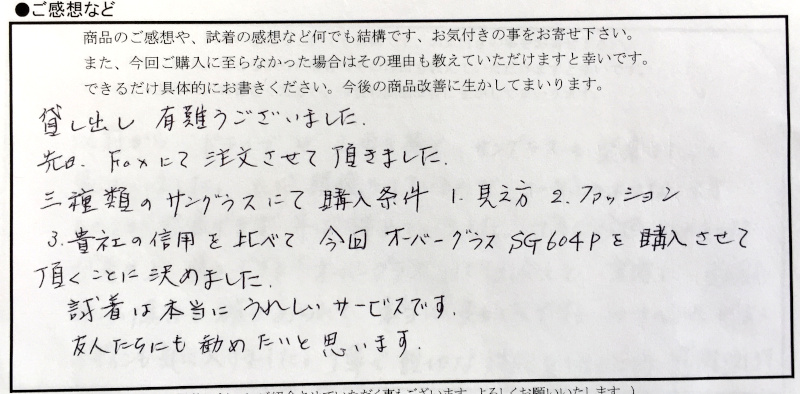 ●ご感想など
商品のご感想や、試着の感想など何でも結構です、お気付きの事をお寄せ下さい。
また、今回ご購入に至らなかった場合はその理由も教えていただけますと幸いです。
できるだけ具体的にお書きください。今後の商品改善に生かしてまいります。
貸し出し 有難うございました.
先日. Foxにて 注文させて 頂きました.
三種類の サングラスにて 購入条件 1. 見え方 2. ファッション
3. 貴社の信用 を 比べて 今回 オーバーグラス SG604P を 購入させて
頂くことに 決めました.
試着は 本当に うれしい サービスです.
友人たちにも 勧めたいと 思います.
ていただく事もございます。よろしくお願いいたします。)